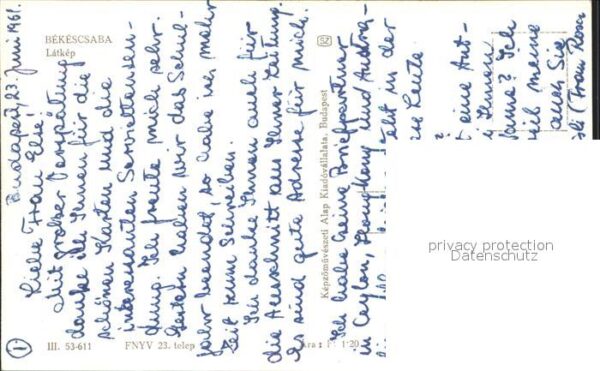 BÉKÉSCSABA
Látkép
Budapest, 23. Juni 1961.
Liebe Frau Else!
Mit großer Verspätung
danke ich Ihnen für die
schönen Karten und die
interessanten Serviettensen-
dung. Ich freute mich sehr.
Gestern haben wir das Schul-
jahr beendet, so habe ich mehr
Zeit zum Schreiben.
Ich danke Ihnen auch für
die Ausschnitt aus Ihrer Zeitung.
Es sind gute Adresse für mich.
Ich habe keine Briefpartner
in Ceylon, Hongkong und Austra-
in der
Leute
eine Ant-
Ihnen
Ich
meine
auch Sie
(Frau
Képzőművészeti Alap Kiadóvállalata, Budapest
III. 53-611
FNYV 23. telep
Ára: Ft 1·20
1
privacy protection
Datenschutz